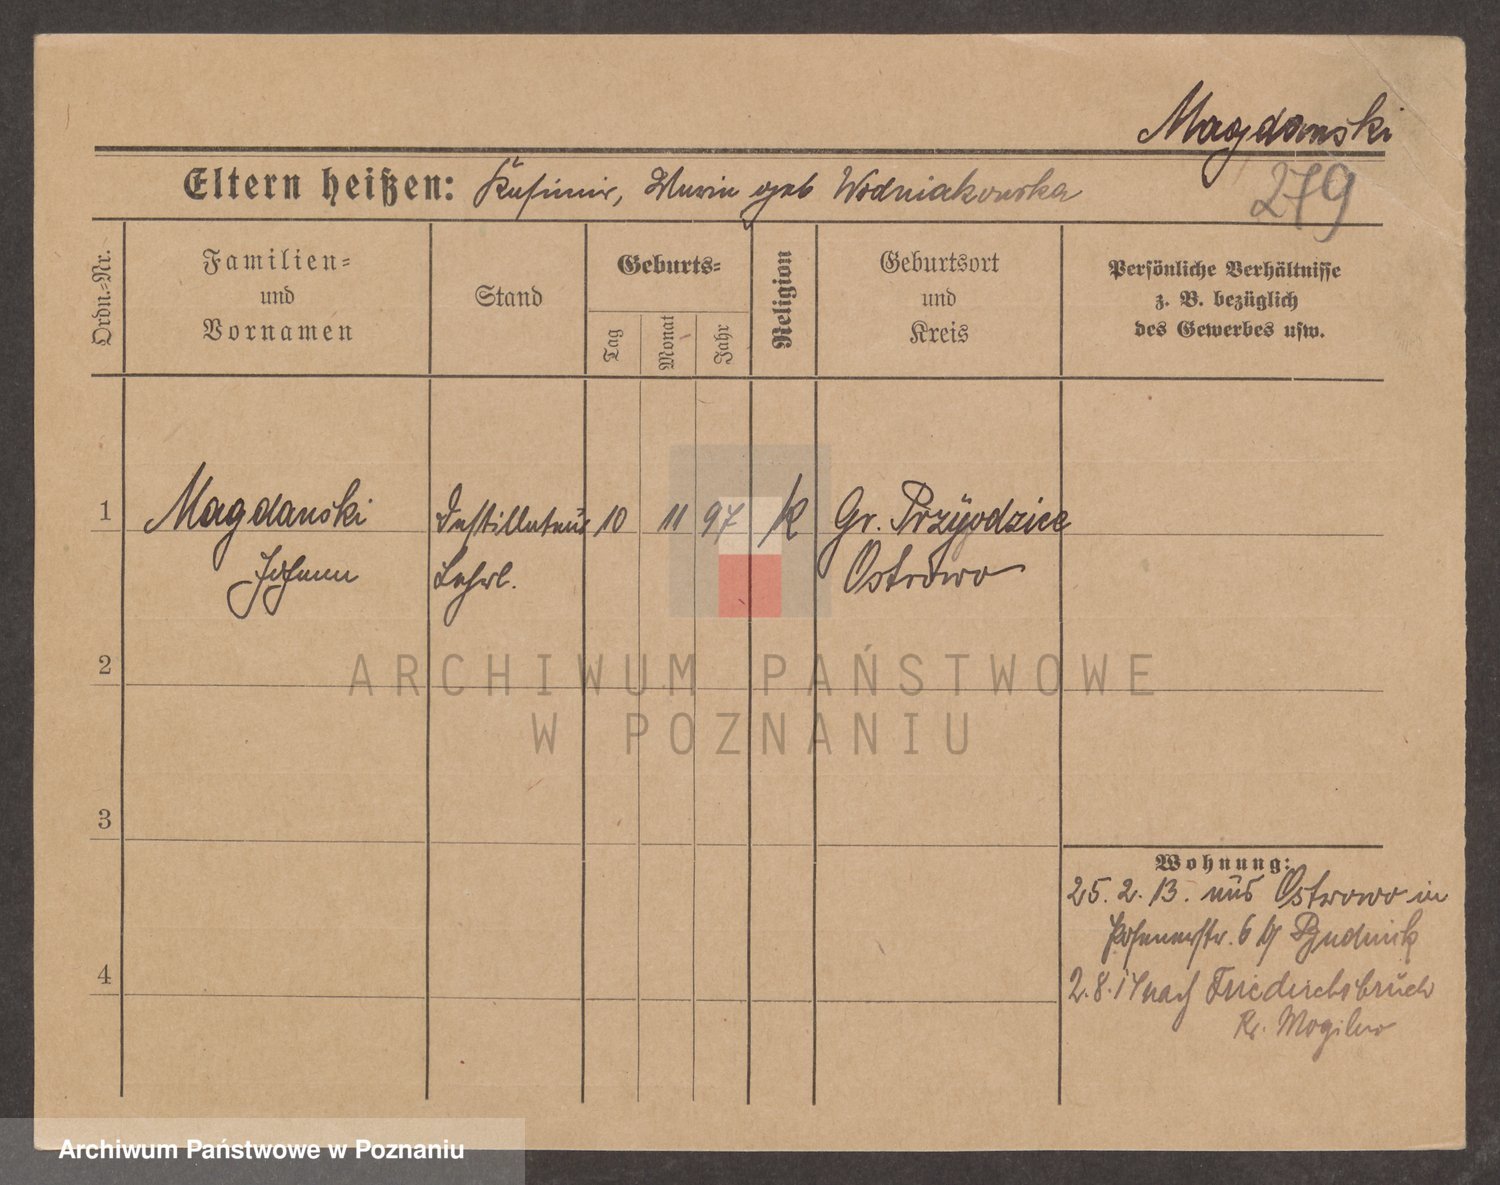 Magdanski
279
Eltern heißen: Kasimir, Maria geb Wodniakowska
Ordn.-Nr.
Familien-
und
Vornamen
Stand
Geburts-
Tag
Monat
Jahr
Religion
Geburtsort
und
Kreis
Persönliche Verhältnisse
z. B. bezüglich
des Gewerbes usw.
1
Magdanski
Johann
Destillateur
Lehrl.
10
11
97
K
Gr. Przygodzice
Ostrowo
2
ARCHIWUM PAŃSTWOWE
W POZNANIU
3
4
Wohnung:
25. 2. 13. aus Ostrowo in
Posenerstr. 6 b/
2. 8. 14 nach Friedrichsbruch
Kr. Mogilno
Archiwum Państwowe w Poznaniu